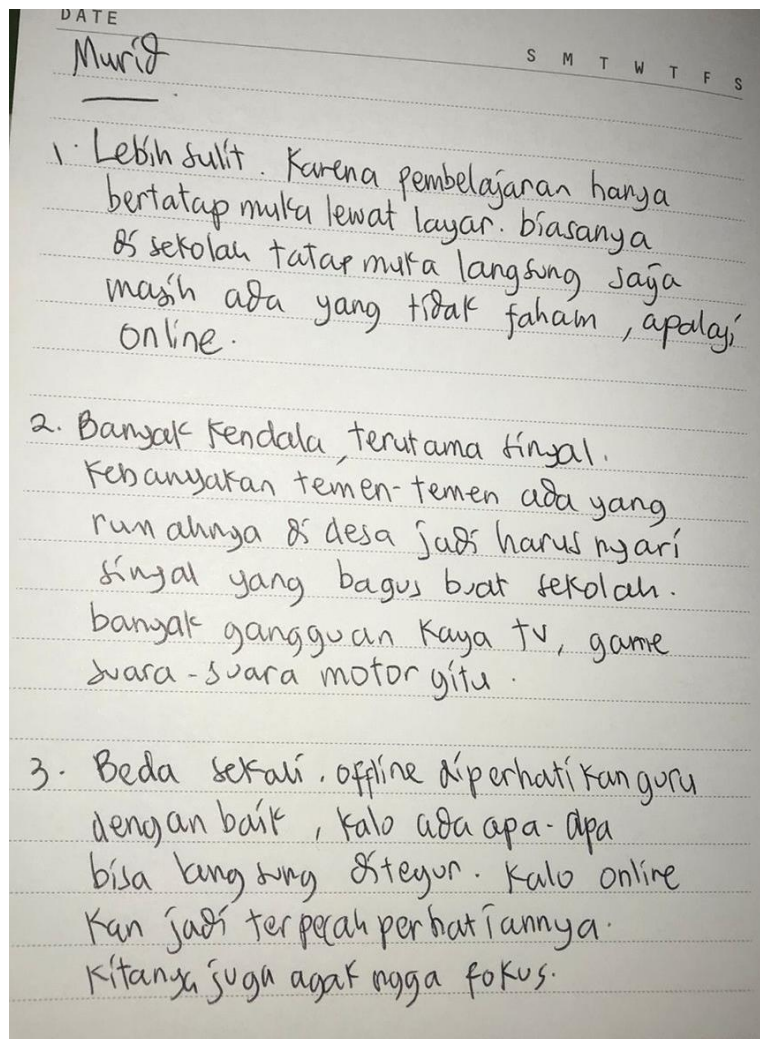 DATE
S M T W T F S
Murid
1. Lebih sulit. Karena pembelajaran hanya
bertatap muka lewat layar. biasanya
di sekolah tatap muka langsung saya
masih ada yang tidak faham, apalagi
online.
2. Banyak kendala, terutama sinyal.
Kebanyakan temen-temen ada yang
rumahnya di desa jadi harus nyari
sinyal yang bagus buat sekolah.
banyak gangguan kaya tv, game
suara-suara motor gitu.
3. Beda sekali. offline diperhatikan guru
dengan baik, kalo ada apa-apa
bisa langsung ditegur. Kalo online
kan jadi terpecah perhatiannya.
Kitanya juga agak ngga fokus.